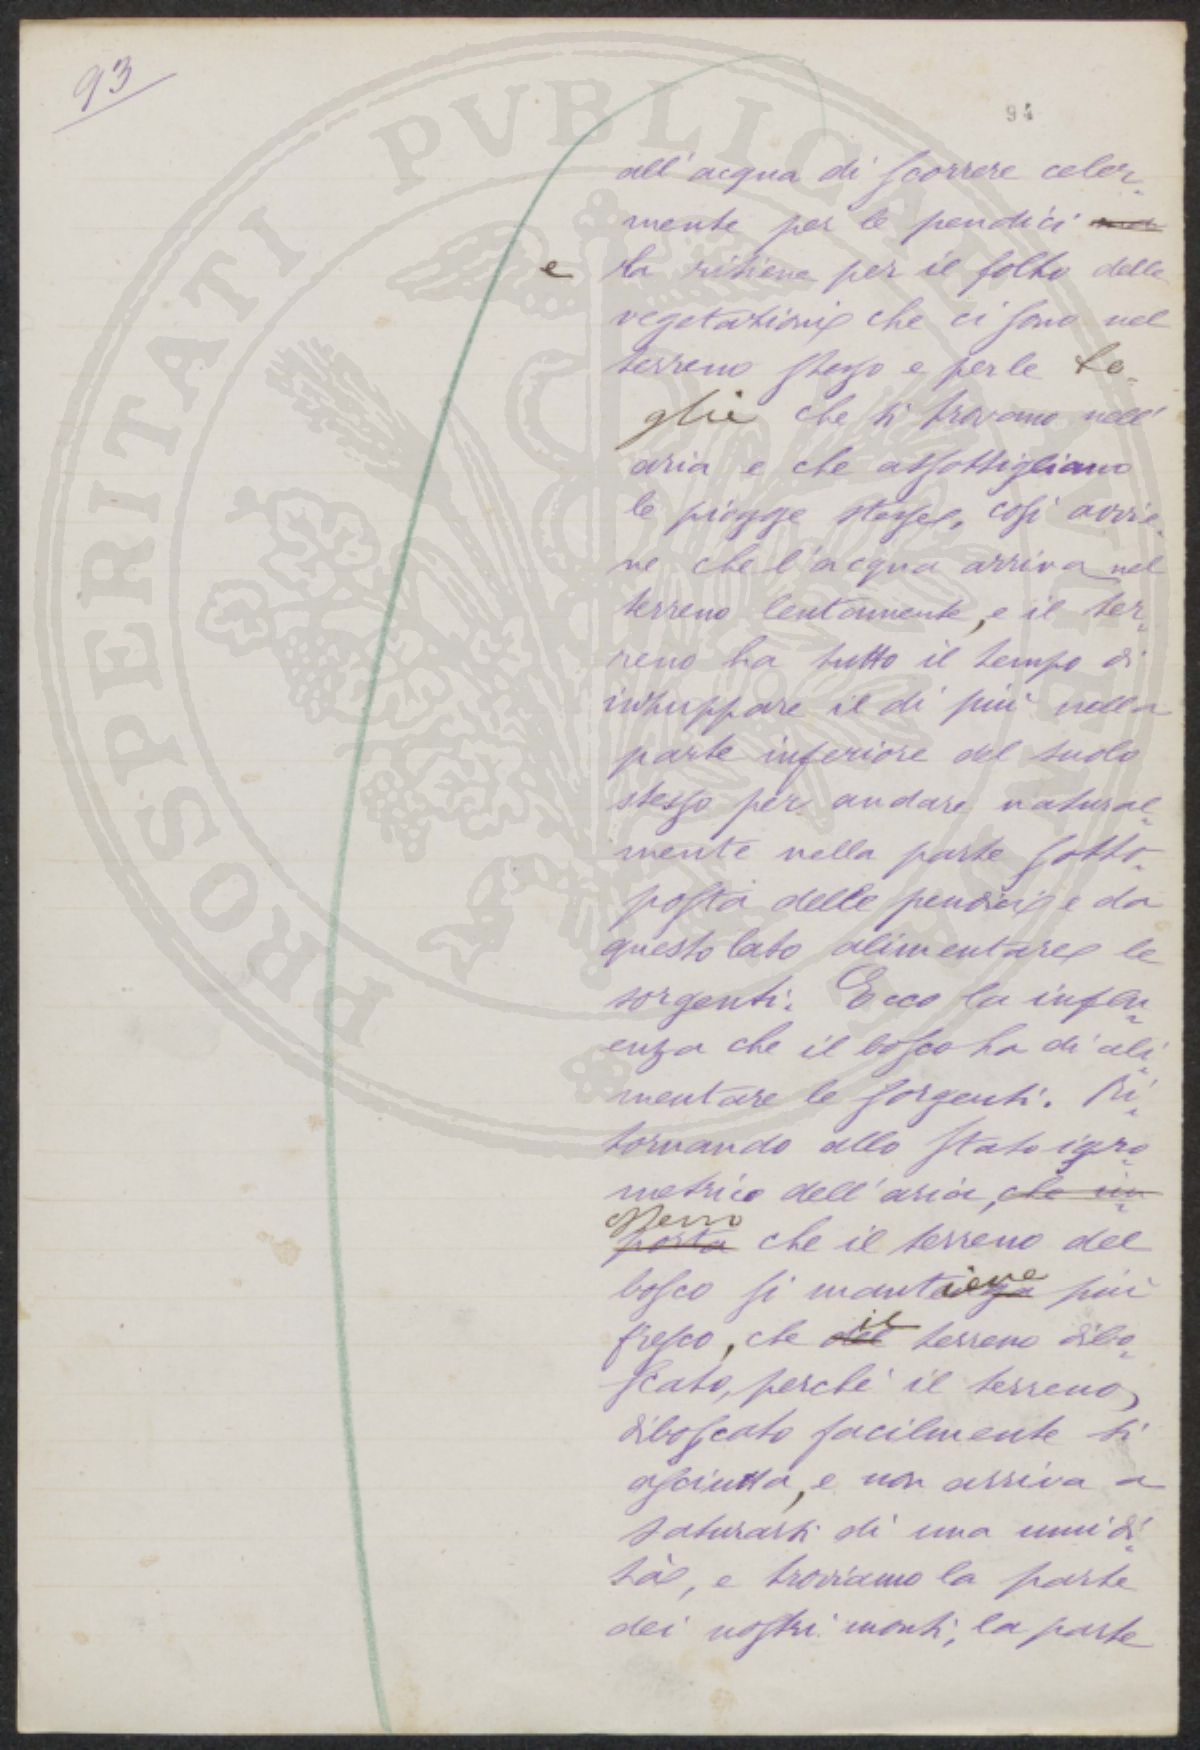 93
94
all'acqua di scorrere celer-
mente per le pendici
e la ritiene per il folto delle
vegetazioni che ci sono nel
terreno stesso e per le fo-
glie che si trovano nell'
aria e che assottigliano
le piogge stesse, così avvie-
ne che l'acqua arriva nel
terreno lentamente, e il ter-
reno ha tutto il tempo di
inzuppare il di più nella
parte inferiore del suolo
stesso per andare natural-
mente nella parte sotto-
posta delle pendici e da
questo lato alimentare le
sorgenti. Ecco la influ-
enza che il bosco ha di ali-
mentare le sorgenti. Ri-
tornando allo stato igro-
metrico dell'aria, che im-
osservo
porta che il terreno del
bosco si mantiene più
fresco, che il terreno disbo-
scato, perché il terreno
disboscato facilmente si
asciutta, e non arriva a
saturarsi di una umidi-
tà, e troviamo la parte
dei nostri monti, la parte
PROSPERITATI PVBLICAE